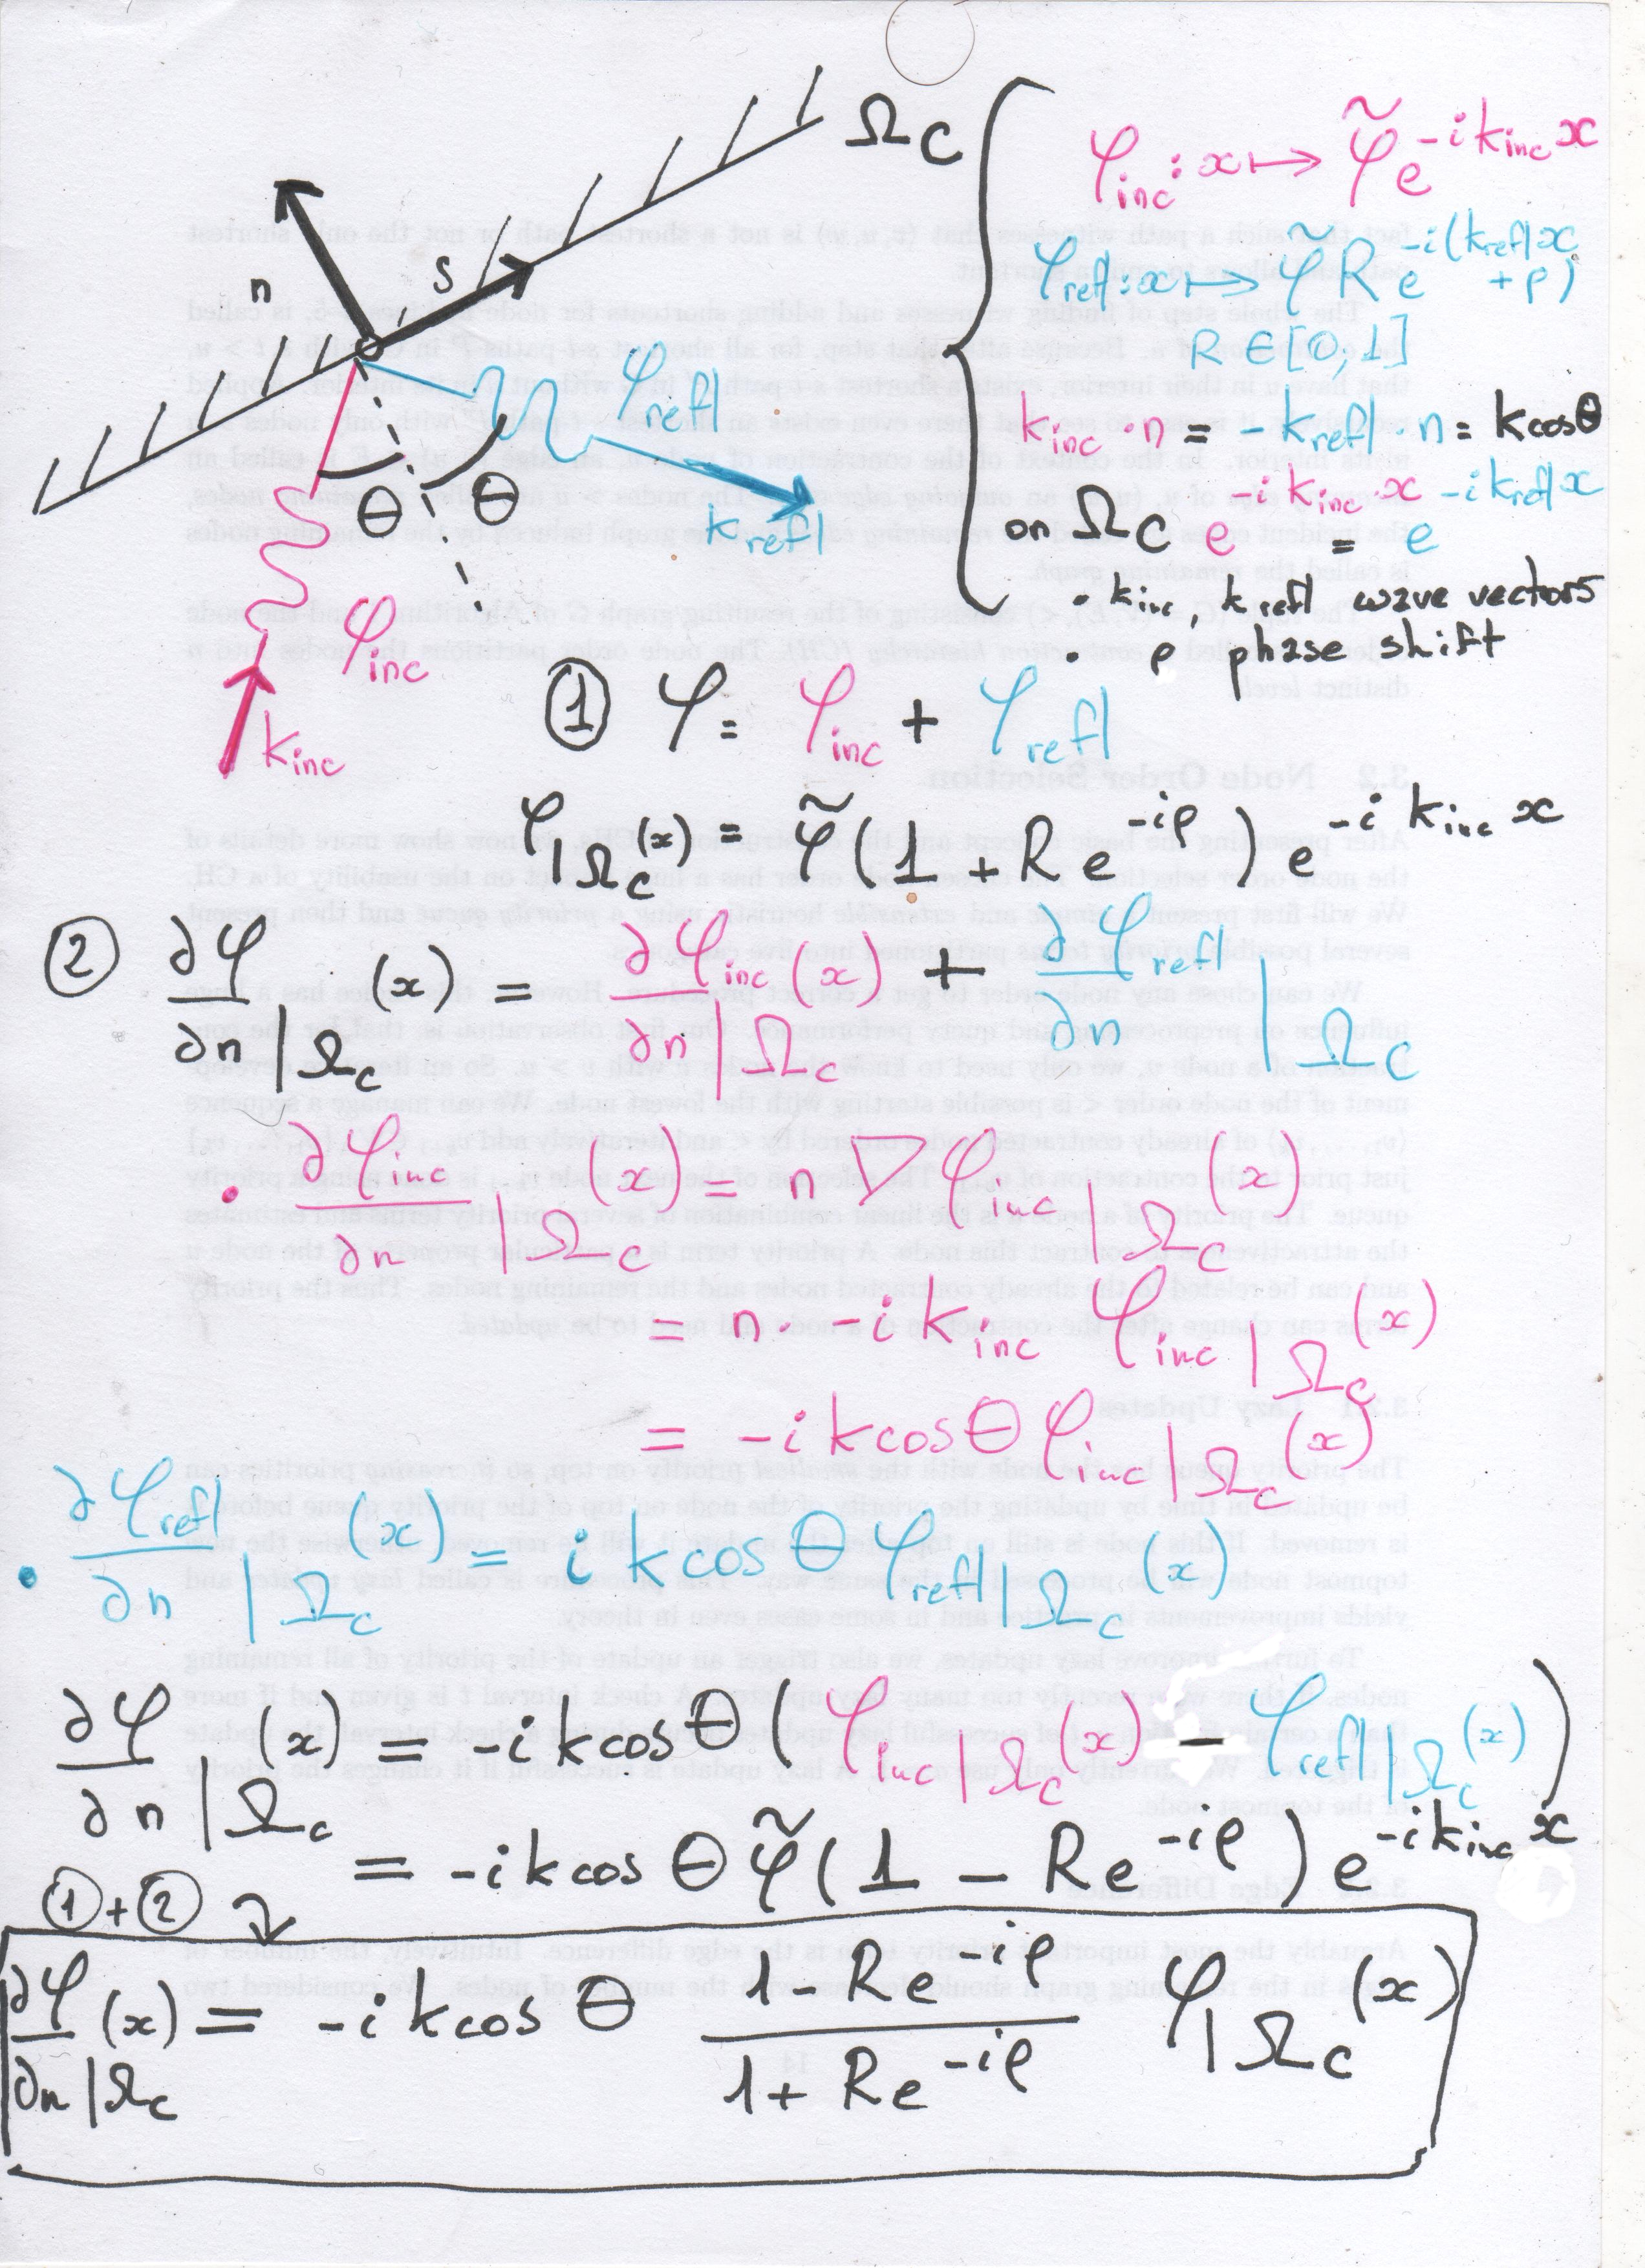 Ω_C
n
s
φ_inc : x ↦ φ̃ e^{-i k_inc x}
φ_refl : x ↦ φ̃ R e^{-i(k_refl x + ρ)}
R ∈ [0,1]
k_inc · n = - k_refl · n = k cosθ
on Ω_C e^{-i k_inc x} = e^{-i k_refl x}
• k_inc, k_refl wave vectors
• ρ phase shift
φ_refl
θ θ
k_refl
φ_inc
k_inc
① φ = φ_inc + φ_refl
φ_{|Ω_C}(x) = φ̃ (1 + R e^{-iρ}) e^{-i k_inc x}
② ∂φ/∂n_{|Ω_C}(x) = ∂φ_inc/∂n_{|Ω_C}(x) + ∂φ_refl/∂n_{|Ω_C}
• ∂φ_inc/∂n_{|Ω_C}(x) = n ∇φ_inc_{|Ω_C}(x)
= n · -i k_inc φ_inc_{|Ω_C}(x)
= -i k cosθ φ_inc_{|Ω_C}(x)
• ∂φ_refl/∂n_{|Ω_C}(x) = i k cos θ φ_refl_{|Ω_C}(x)
∂φ/∂n_{|Ω_C}(x) = -i k cosθ (φ_inc_{|Ω_C}(x) - φ_refl_{|Ω_C}(x))
= -i k cos θ φ̃ (1 - R e^{-iρ}) e^{-i k_inc x}
①+②
∂φ/∂n_{|Ω_C}(x) = -i k cos θ (1 - R e^{-iρ})/(1 + R e^{-iρ}) φ_{|Ω_C}(x)